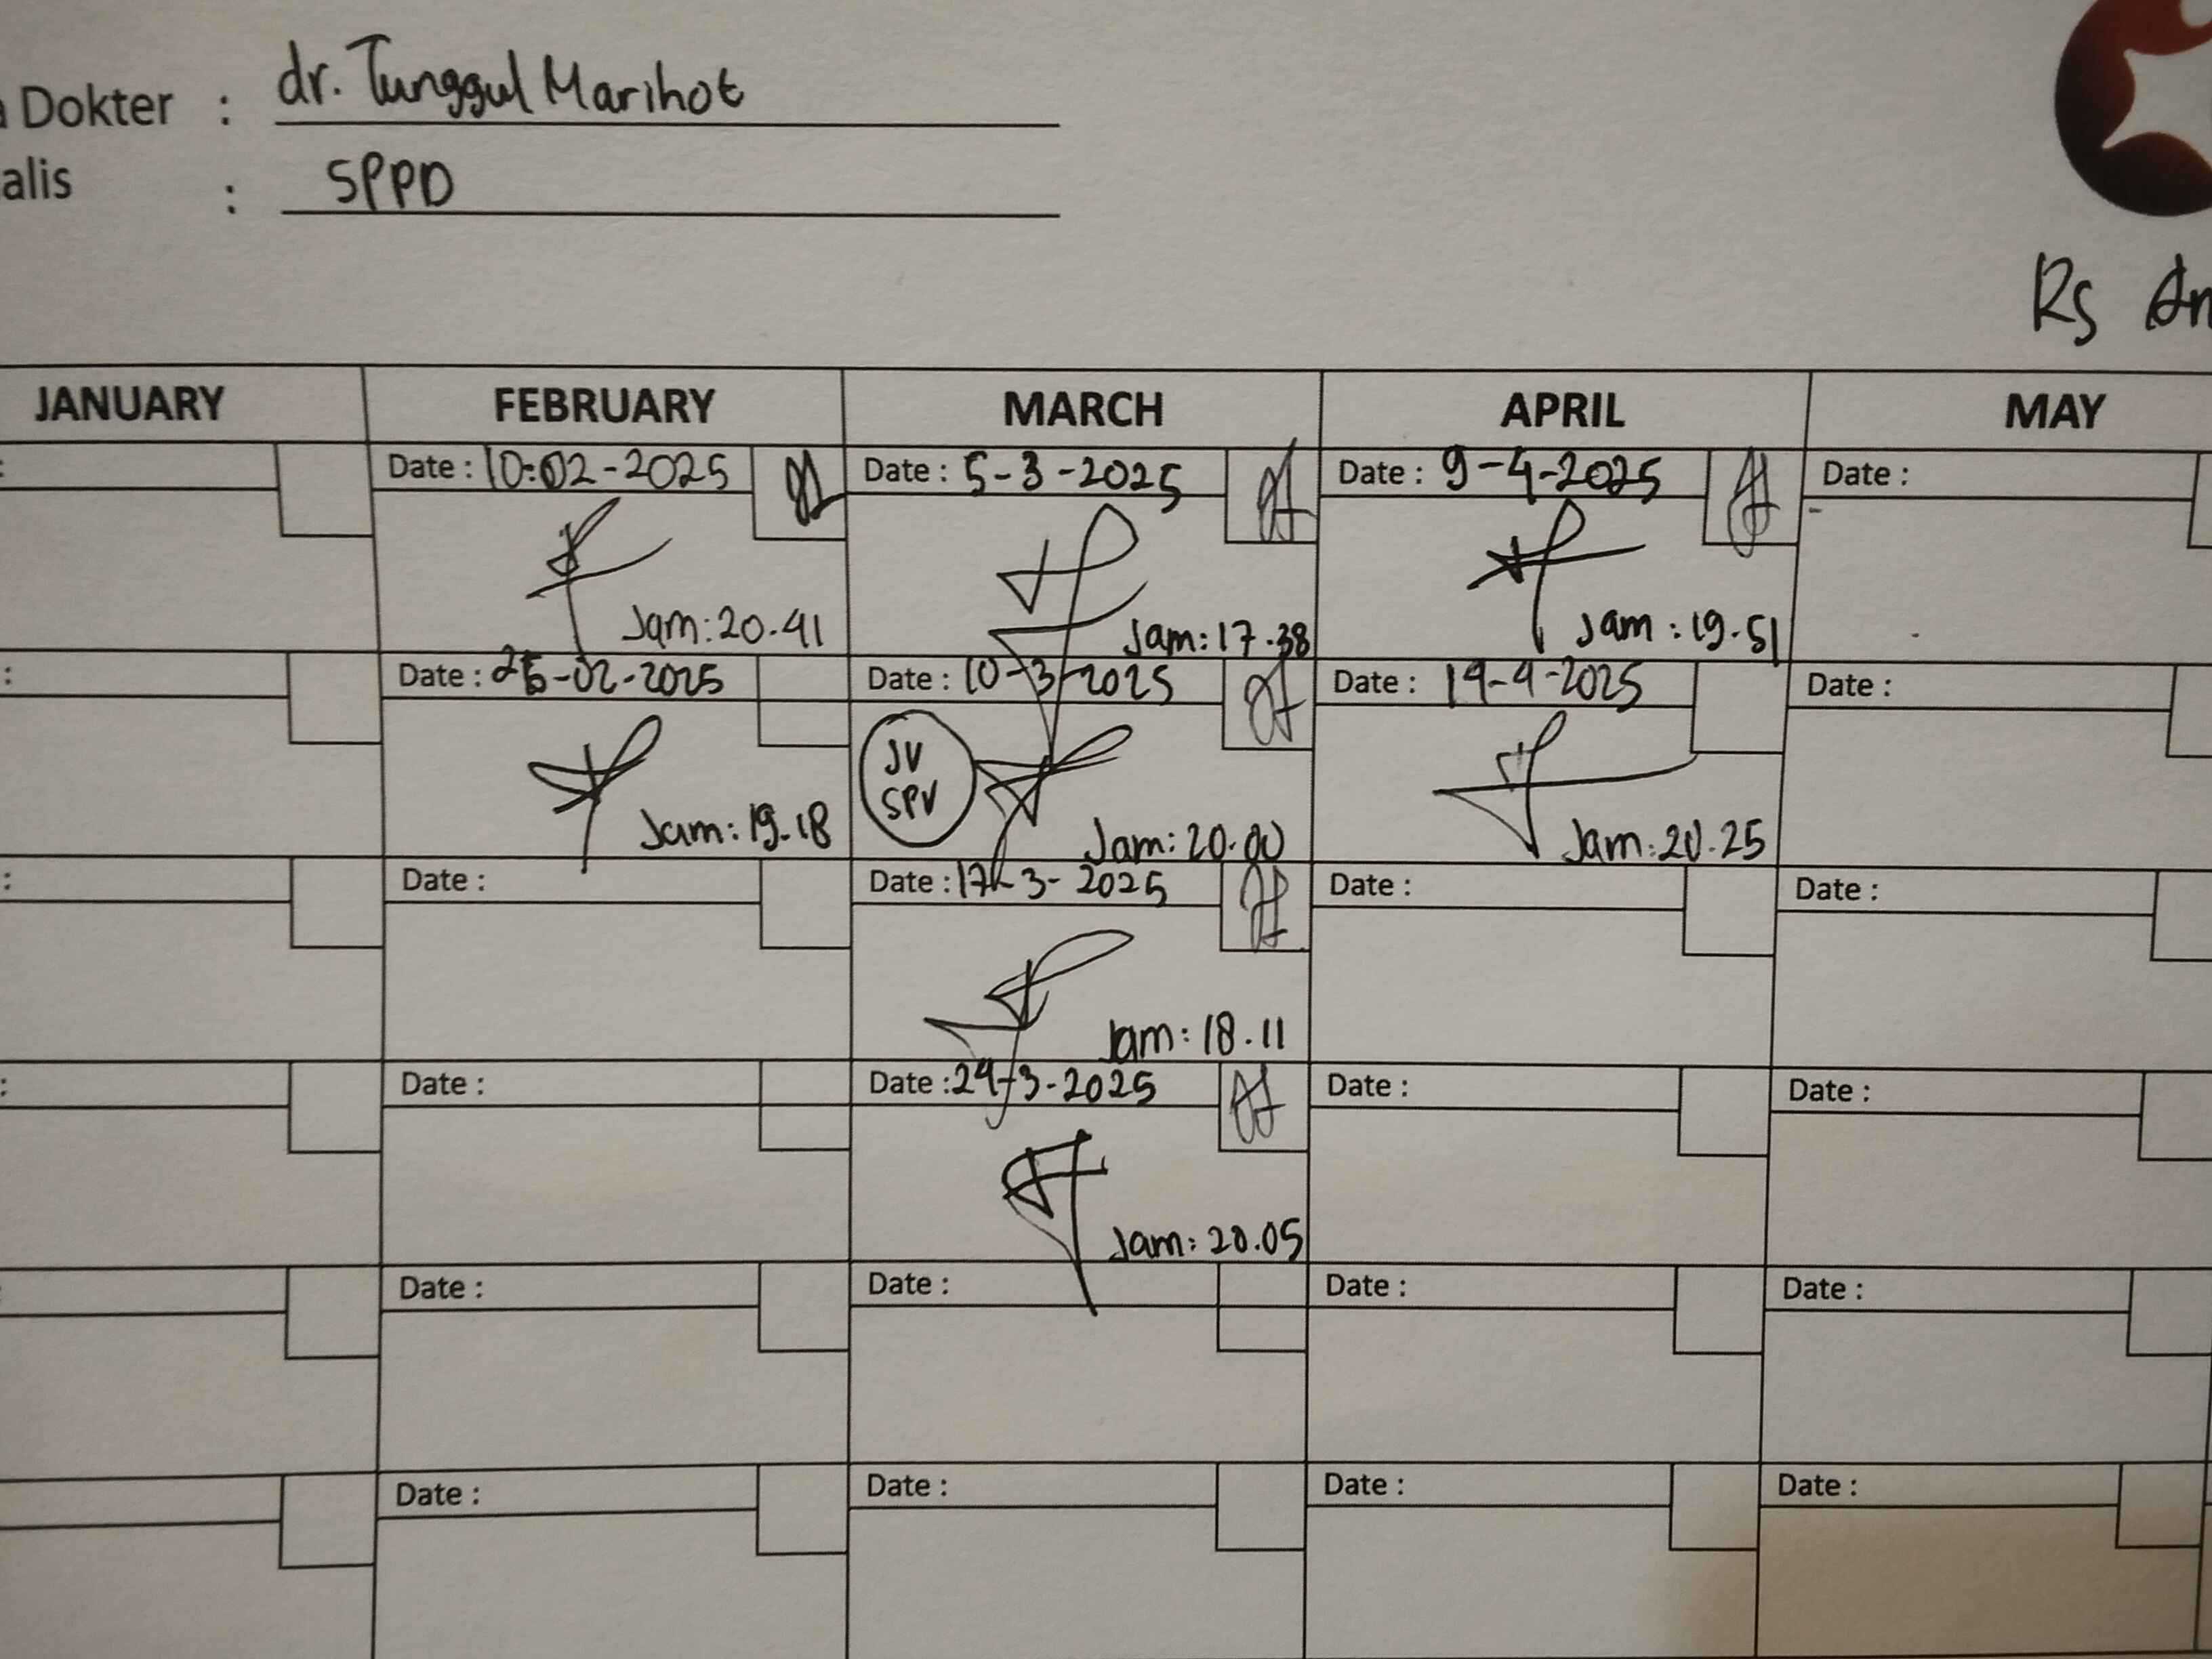 Dokter : dr. Tunggul Marihot
alis : SPPD
Rs An
JANUARY FEBRUARY MARCH APRIL MAY
: Date : 10-02-2025 Date : 5-3-2025 Date : 9-4-2025 Date :
Jam: 20.41 Jam: 17.38 Jam : 19.51
: Date : -02-2025 Date : 10-3-2025 Date : 14-4-2025 Date :
JV
SPV
Jam: 19.18 Jam: 20.00 Jam: 20.25
: Date : Date : 17-3-2025 Date : Date :
Jam: 18.11
: Date : Date : 24-3-2025 Date : Date :
Jam: 20.05
: Date : Date : Date : Date :
Date : Date : Date : Date :